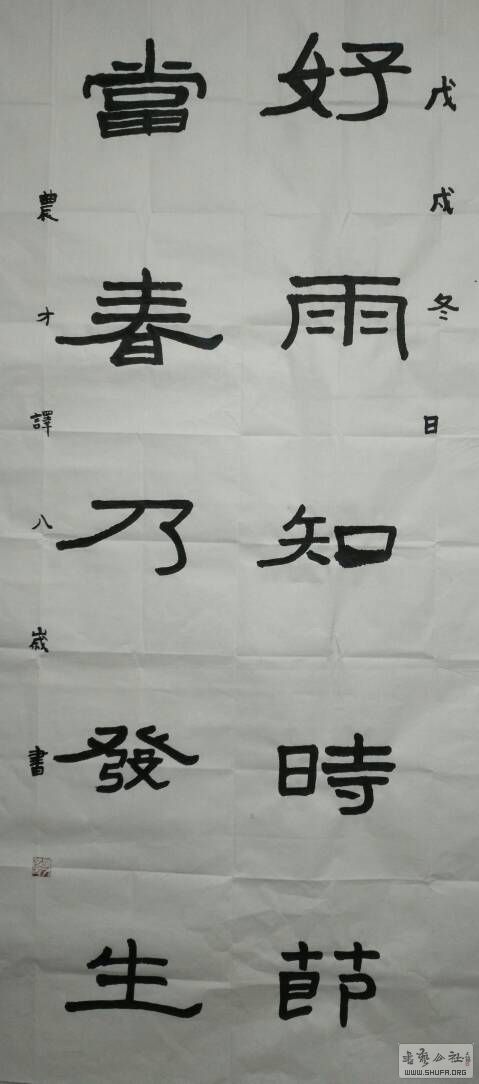 戊戌冬日
好雨知時節
當春乃發生
農才譯八歲書
書藝公社
WWW.SHUFA.ORG